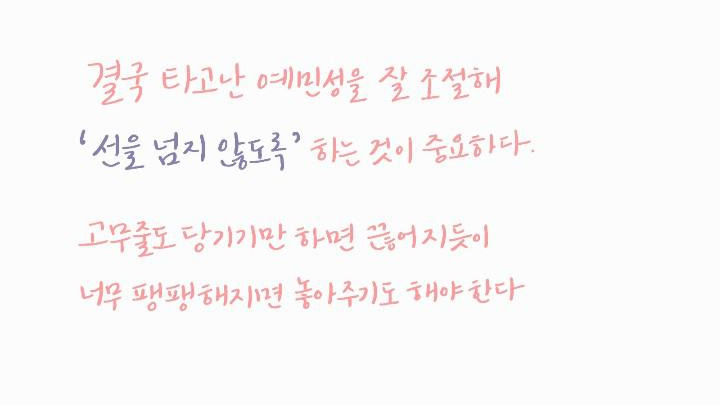 결국 타고난 예민성을 잘 조절해
‘선을 넘지 않도록’ 하는 것이 중요하다.
고무줄도 당기기만 하면 끊어지듯이
너무 팽팽해지면 놓아주기도 해야한다